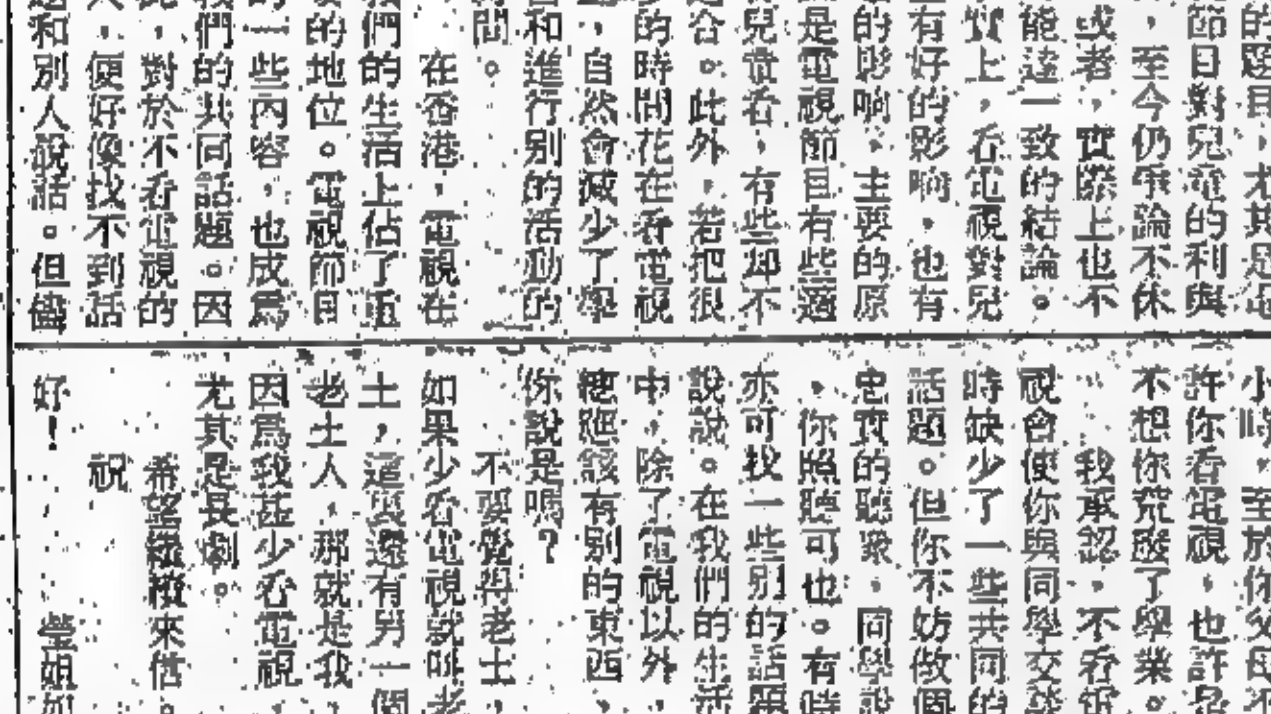 的題目，尤其是電
視節目對兒童的利與
，至今仍爭論不休
或者，實際上也不
能達一致的結論。
實上，看電視對兒
有好的影响，也有
的影响，主要的原
是電視節目有些適
兒童看，有些却不
合。此外，若把很
的時間花在看電視
，自然會減少了學
和進行别的活動的
間。
在香港，電視在
我們的生活上佔了重
的地位。電視節目
的一些內容，也成爲
我們的共同話題。因
此，對於不看電視的
人，便好像找不到話
題和別人說話。但儘
小時，至於你父母不
許你看電視，也許是
不想你荒廢了學業。
我承認，不看電
視會使你與同學交談
時缺少了一些共同的
話題。但你不妨做個
忠實的聽衆，同學說
，你照聽可也。有時
亦可找一些別的話題
說說。在我們的生活
中，除了電視以外，
總應該有别的東西，
你說是嗎？
不要覺得老土，
如果少看電視就叫老
土，這裏還有另一個
老土人，那就是我，
因爲我甚少看電視，
尤其是長劇。
希望繼續來信。
祝
好！
瑩姐